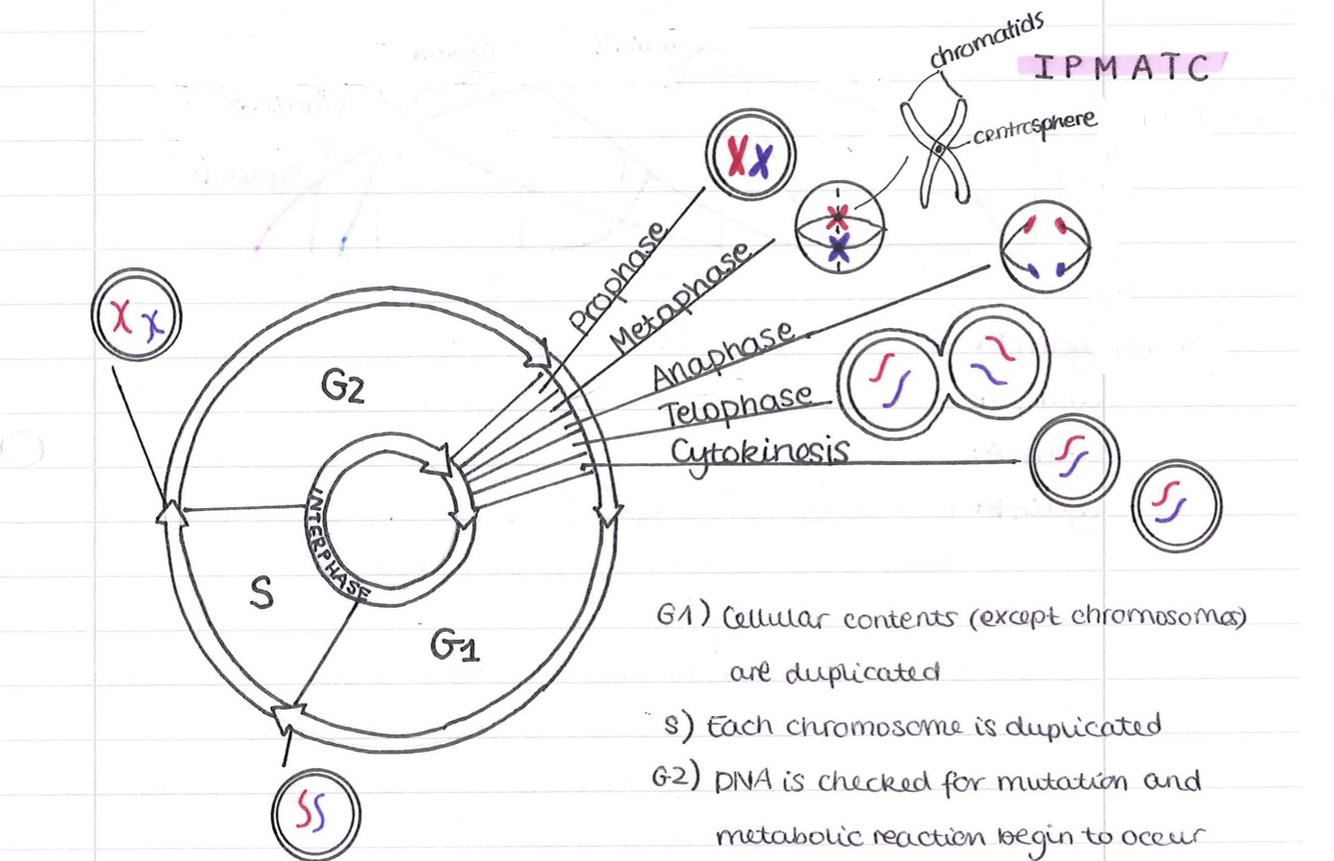 chromatids
IPMATC
centrosphere
Prophase
Metaphase
Anaphase
Telophase
Cytokinesis
G2
INTERPHASE
S
G1
G1) Cellular contents (except chromosomes)
are duplicated
S) Each chromosome is duplicated
G2) DNA is checked for mutation and
metabolic reaction begin to occur